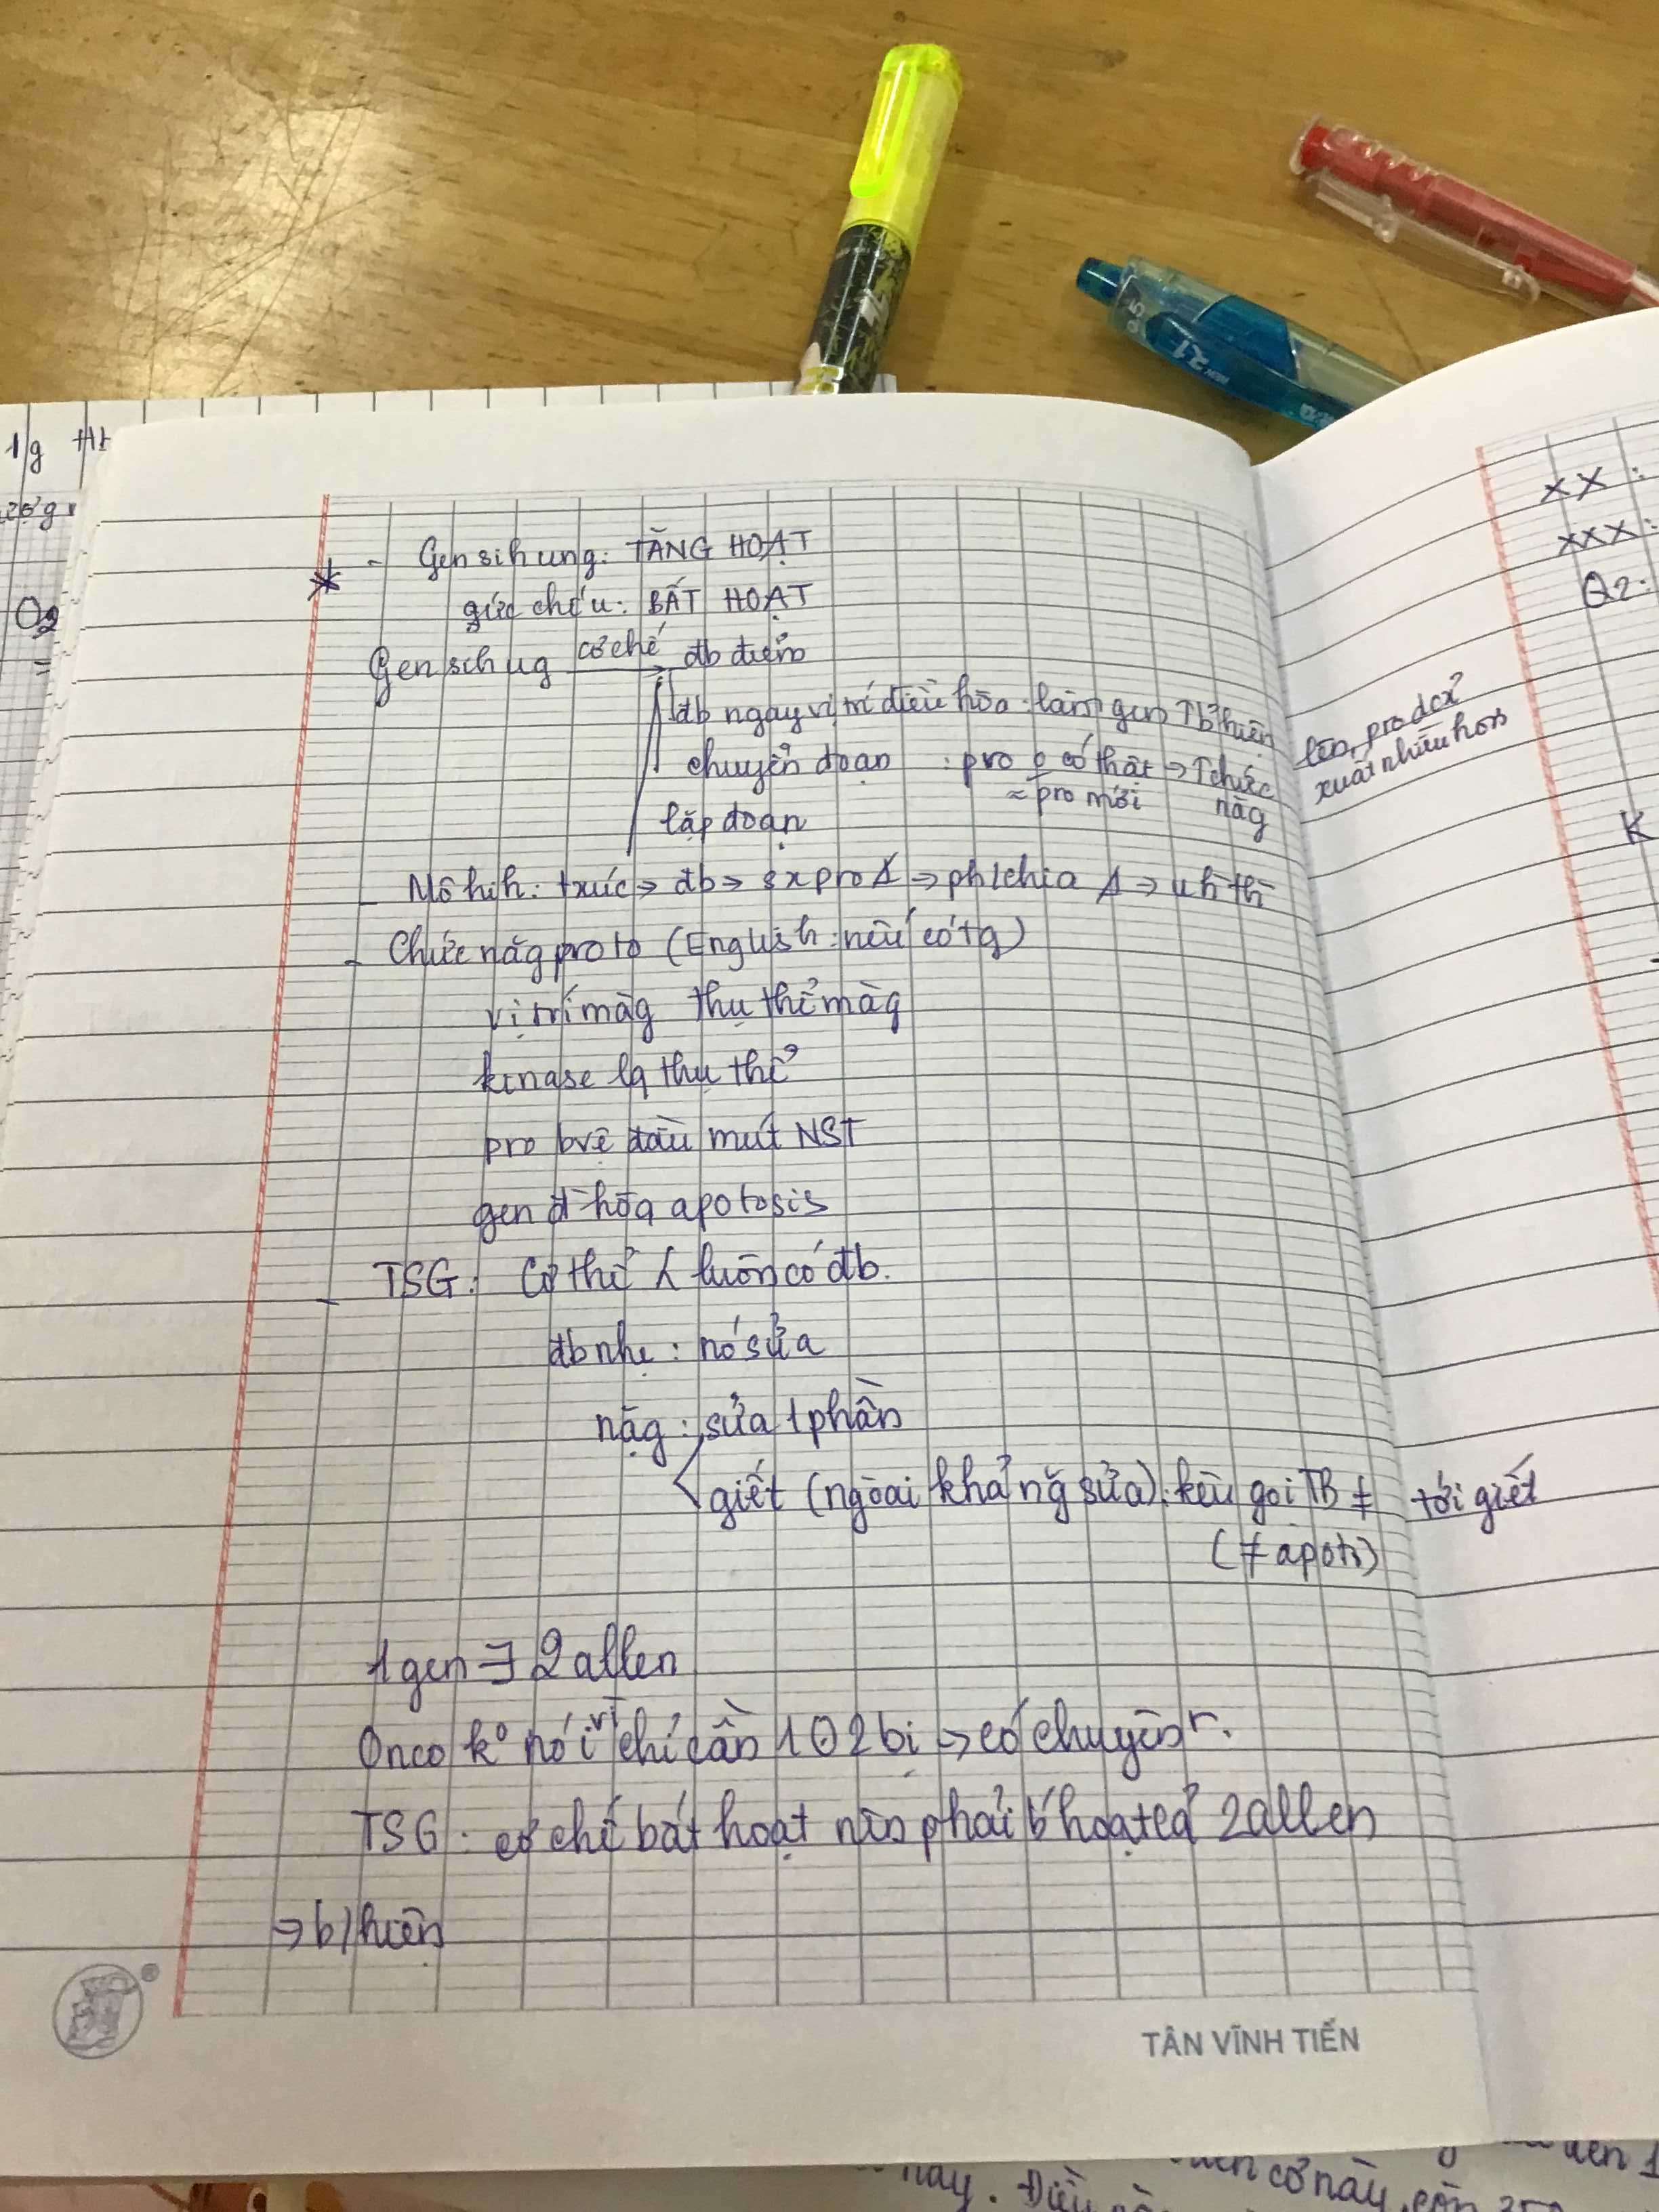 1g
Q2
- Gen sih ung: TĂNG HOẠT
* gức chế u: BẤT HOẠT
Gen sih ug cơ chế → đb điểm
đb ngay vị trí điều hòa: làm gen ↑ b' hiện lên, pro dc sx
xuất nhiều hơn
chuyển đoạn : pro o có thật → ↑ chức năg
≈ pro mới
lặp đoạn
- Mô hìh: trước → đb → sx pro → → ư thì
- Chức năg proto (English: nếu có tg)
vị trí màg thụ thể màg
kinase là thụ thể
pro bvệ đầu mút NST
gen đ hòa apotosis
- TSG: Cơ thể luôn có đb.
đb nhẹ: nó sửa
nặg: sửa 1 phần
giết (ngoài khả năg sửa): kêu gọi TB ≠ tới giết
(≠ apots)
1 gen ∃ 2 allen
Onco k° nói vì chỉ cần 1 2 bị → có chuyện r.
TSG: cơ chế bất hoạt nên phải b' hoạt cả 2 allen
→ b/hiện
TÂN VĨNH TIẾN
XX:
XXX:
Q2:
K
này. Điều
cơ này, còn